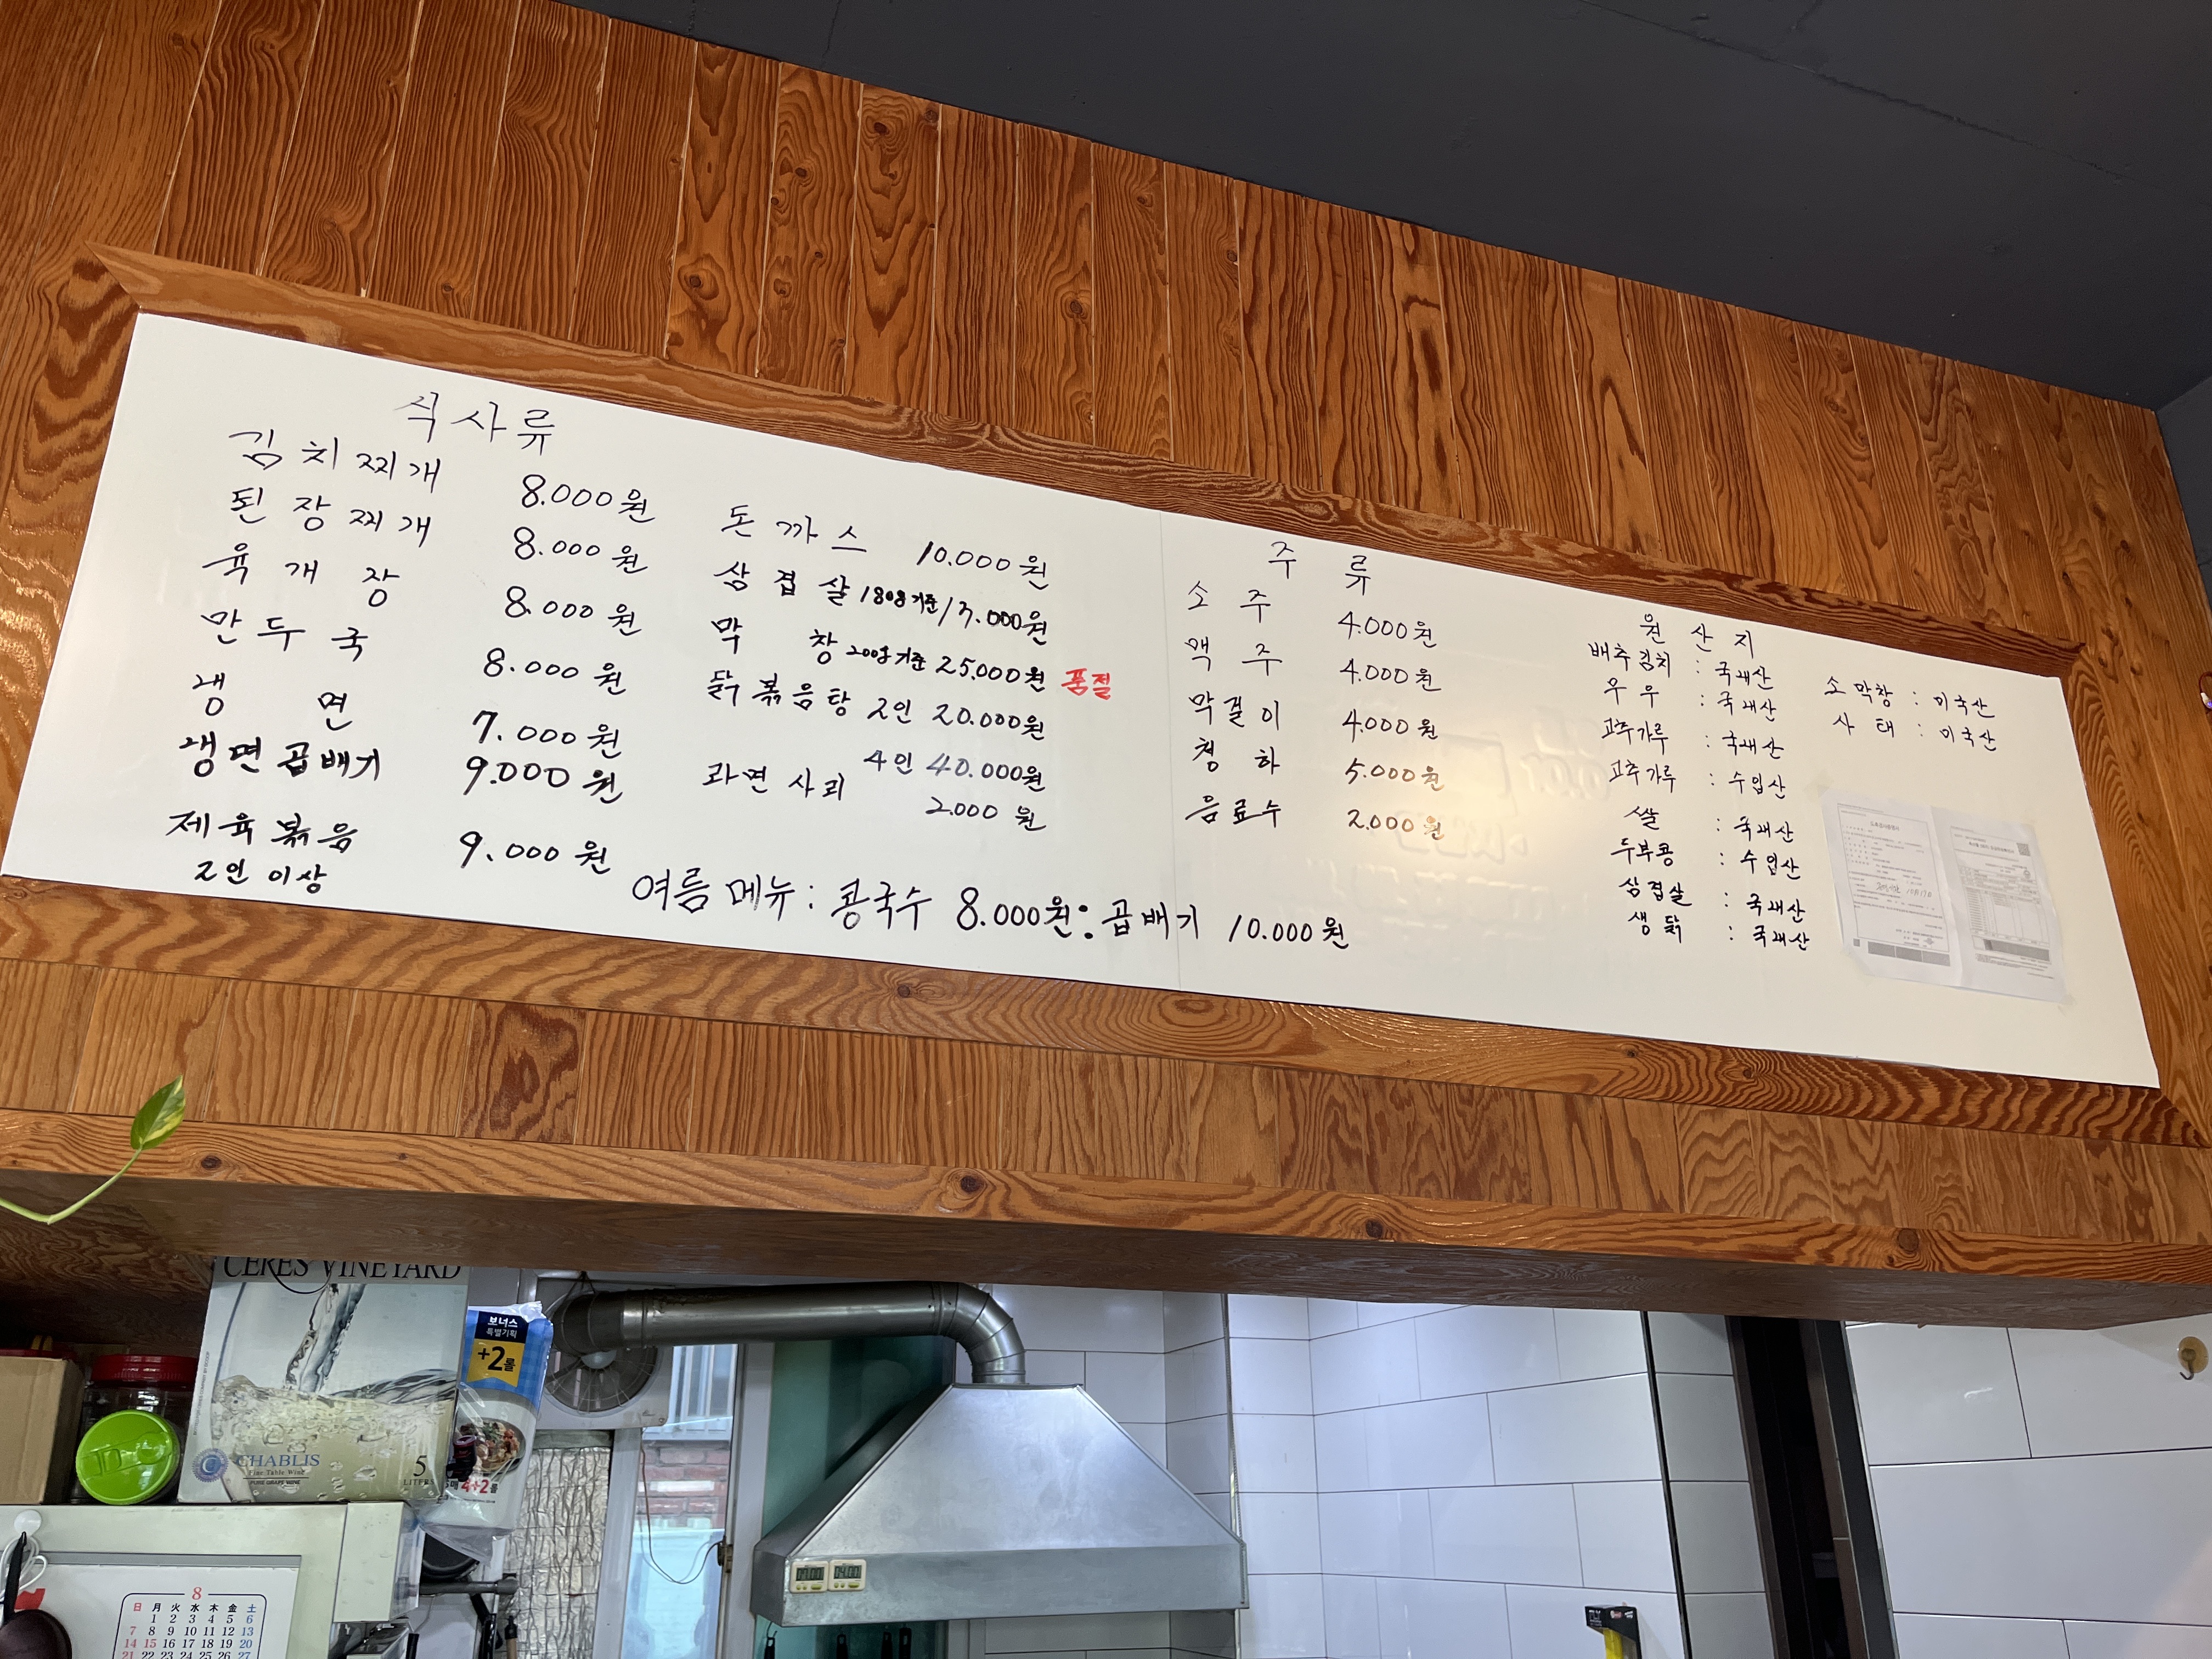 식사류
김치찌개 8.000원
된장찌개 8.000원
육개장 8.000원
만두국 8.000원
냉면 7.000원
냉면곱배기 9.000원
제육볶음 9.000원
2인 이상
돈까스 10.000원
삼겹살 180g기준 13.000원
막창 200g기준 25.000원 품절
닭볶음탕 2인 20.000원
4인 40.000원
라면사리 2.000원
여름메뉴: 콩국수 8.000원: 곱배기 10.000원
주류
소주 4.000원
맥주 4.000원
막걸이 4.000원
청하 5.000원
음료수 2.000원
원산지
배추김치 : 국내산
우우 : 국내산
고추가루 : 국내산
고추가루 : 수입산
쌀 : 국내산
두부콩 : 수입산
삼겹살 : 국내산
생닭 : 국내산
소막창 : 미국산
사태 : 미국산
CERES VINEYARD
CHABLIS
Fine Table Wine
PURE GRAPE WINE
5
LITERS
보너스
특별기획
+2롤
4+2롤
8
日 月 火 水 木 金 土
1 2 3 4 5 6
7 8 9 10 11 12 13
14 15 16 17 18 19 20
21 22 23 24 25 26 27